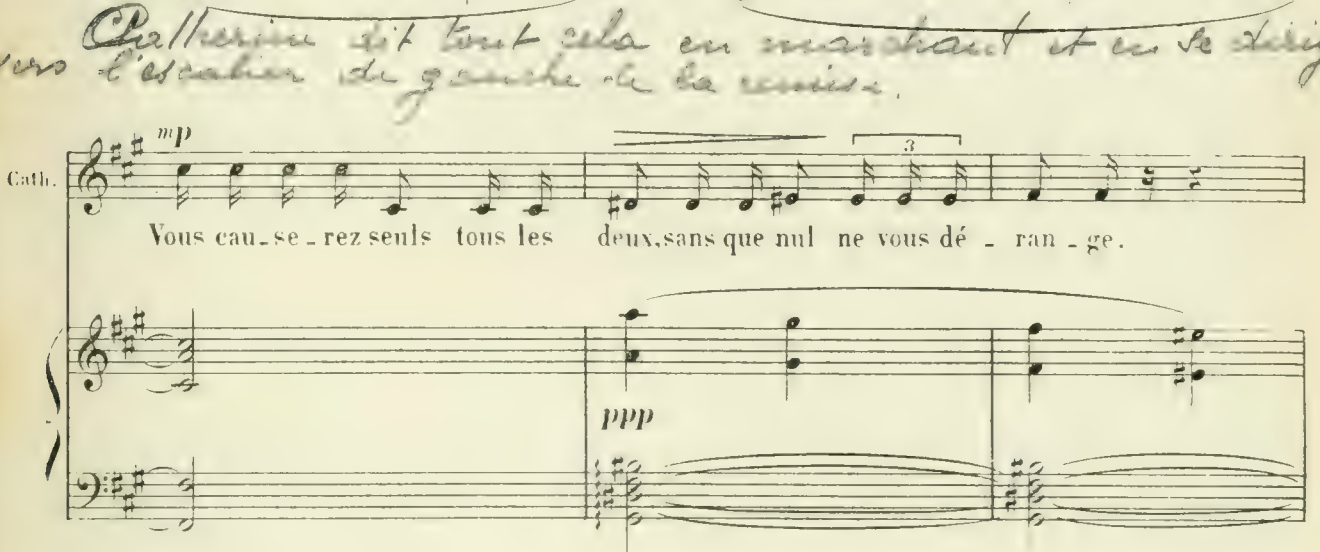 Chatherine dit tout cela en marchant et en se dirig
vers l'escalier de gauche de la remise.
mp
3
Cath.
Vous cau_se_rez seuls tous les deux, sans que nul ne vous dé_ran_ge.
ppp